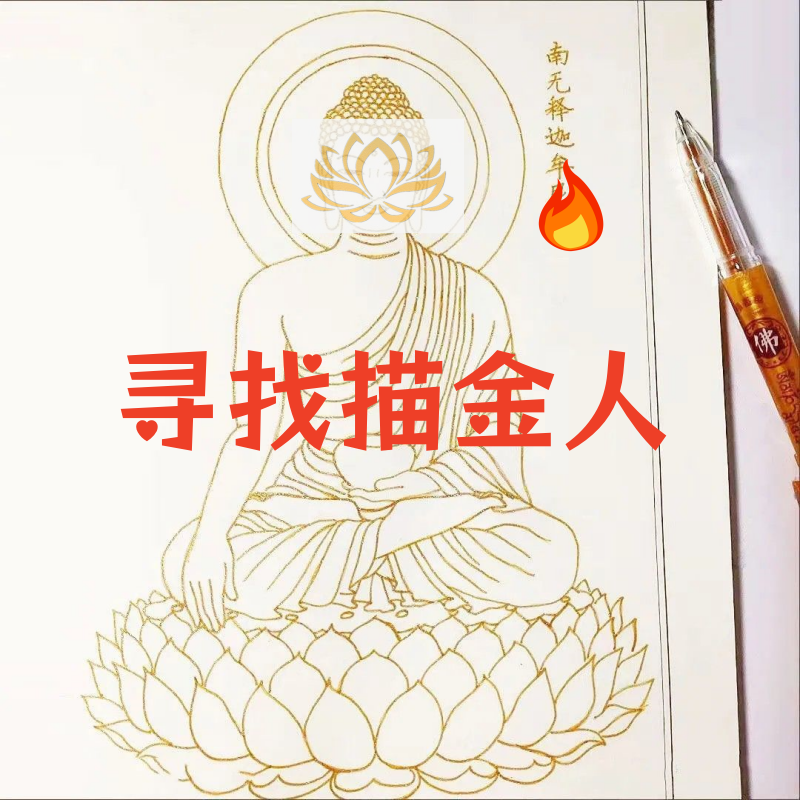 南无释迦牟
寻找描金人
佛